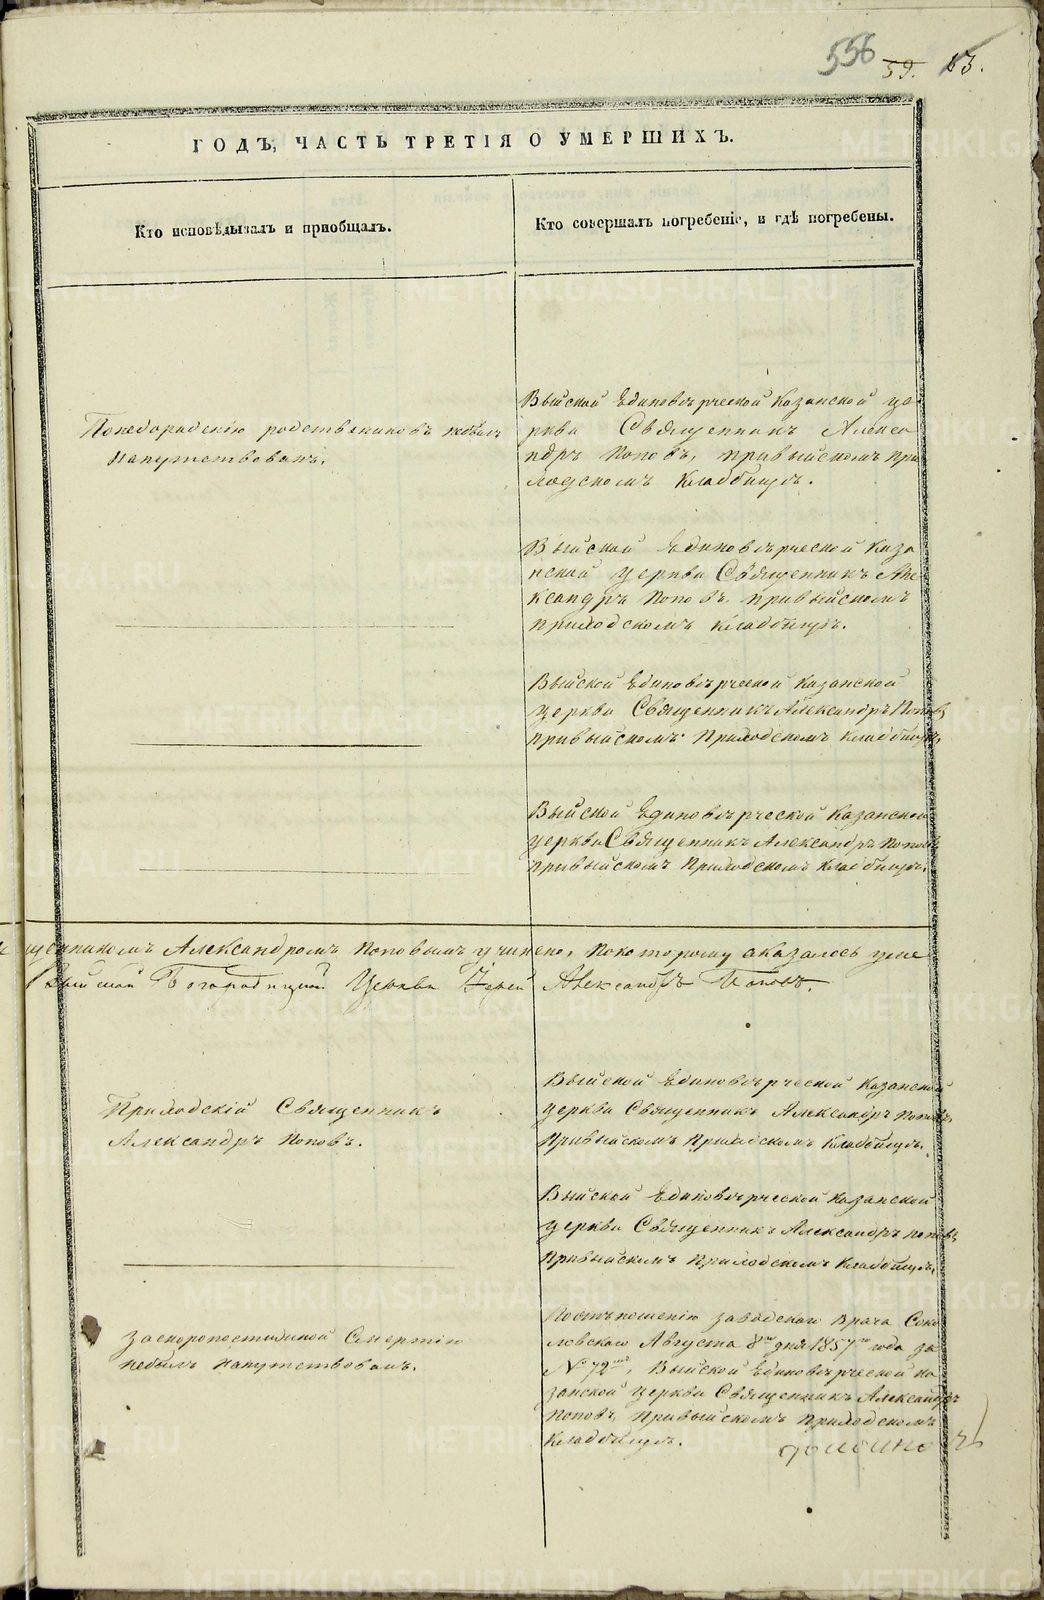 556 59. 63.
ГОДЪ, ЧАСТЬ ТРЕТІЯ О УМЕРШИХЪ.
Кто исповѣдывалъ и пріобщалъ.
Кто совершалъ погребеніе, и гдѣ погребены.
Понедорадскію родственниковъ небылъ
напутствованъ.
Выйской Единовѣрческой Казанской це-
ркви Священникъ Алекса
ндръ Поповъ, привыйскомъ При
ходскомъ Кладбищѣ.
Выйской Единовѣрческой Каза
нской церкви Священникъ Але-
ксандръ Поповъ привыйскомъ
приходскомъ кладбищѣ.
Выйской Единовѣрческой Казанской
церкви Священникъ Александръ Поповъ
привыйскомъ Приходскомъ кладбищѣ,
Выйской Единовѣрческой Казанской
церкви Священникъ Александръ Поповъ
привыйскомъ Приходскомъ Кладбищѣ.
щенникомъ Александромъ Поповымъ учинено, покоторому аказалось уме
Выйской Богородицкой Церкви Іерей Александръ Поповъ.
Приходскій Священникъ
Александръ Поповъ.
Выйской Единовѣрческой Казанской
церкви Священникъ Александръ Поповъ
Привыйскомъ Приходскомъ Кладбищѣ.
Выйской Единовѣрческой Казанской
церкви Священникъ Александръ Поповъ
Привыйскомъ Приходскомъ Кладбищѣ.
Заскоропостижной Смертію
небылъ напутствованъ.
Поотъношенію завадскаго Врача Соко
ловскаго Августа 8го дня 1857го года за
№ 72мъ, Выйской Единовѣрческой Ка
занской церкви Священникъ Александръ
Поповъ, Привыйскомъ Приходскомъ
Кладбищѣ.
METRIKI.GASO-URAL.RU